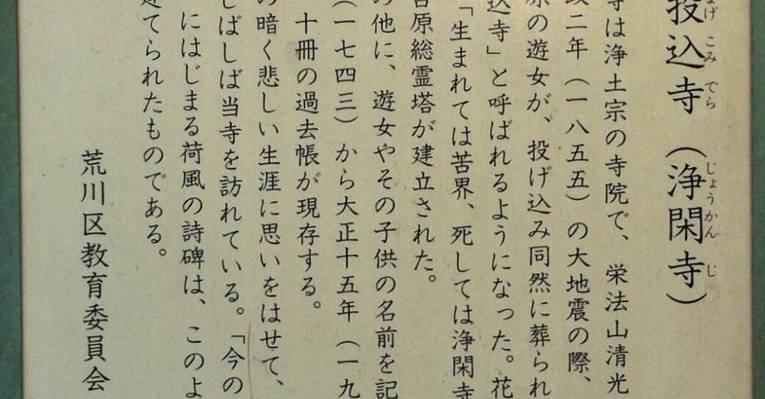 投込寺（浄閑寺）
寺は浄土宗の寺院で、栄法山清光
政二年（一八五五）の大地震の際、
原の遊女が、投げ込み同然に葬られ
込寺」と呼ばれるようになった。花
「生まれては苦界、死しては浄閑寺
吉原総霊塔が建立された。
の他に、遊女やその子供の名前を記
（一七四三）から大正十五年（一九
十冊の過去帳が現存する。
の暗く悲しい生涯に思いをはせて、
しばしば当寺を訪れている。「今の
にはじまる荷風の詩碑は、このよ
建てられたものである。
荒川区教育委員会